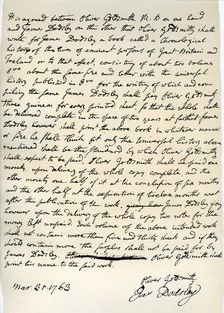 It is agreed between Oliver Goldsmith M. B on one hand
and James Dodsley on the other that Oliver Goldsmith shall
write for James Dodsley a book called a Chronological
history of the lives of eminent persons of Great Britain and
Ireland or to that effect, consisting of about two volumes
8vo. about the same size and letter with the universal
history published in 8vo. for the writing of which and com
piling the same James Dodsley shall pay Oliver Goldsmith
three guineas for every printed sheet, so that the whole shall
be delivered complete in the space of two years at farthest James
Dodsley however shall print the above book in whatever manner
or size he shall think fit only the Universal history above
mentioned shall be the standard by which Oliver Goldsmith
shall expect to be paid. Oliver Goldsmith shall be paid one
moiety upon delivery of the whole copy complete and the
other moiety one half of it at the conclusion of six months
and the other half at the expiration of twelve months next
after the publication of the work, James Dodsley giving
however upon the delivery of the whole copy two notes for the
money left unpaid. Each volume of the above intended work
shall not contain more than five and thirty sheets and if they
should contain more the surplus shall not be paid for by
James Dodsley. Oliver Goldsmith shall
print his name to the said work.
Oliver Goldsmith.
Jas Dodsley
Mar. 31 1763